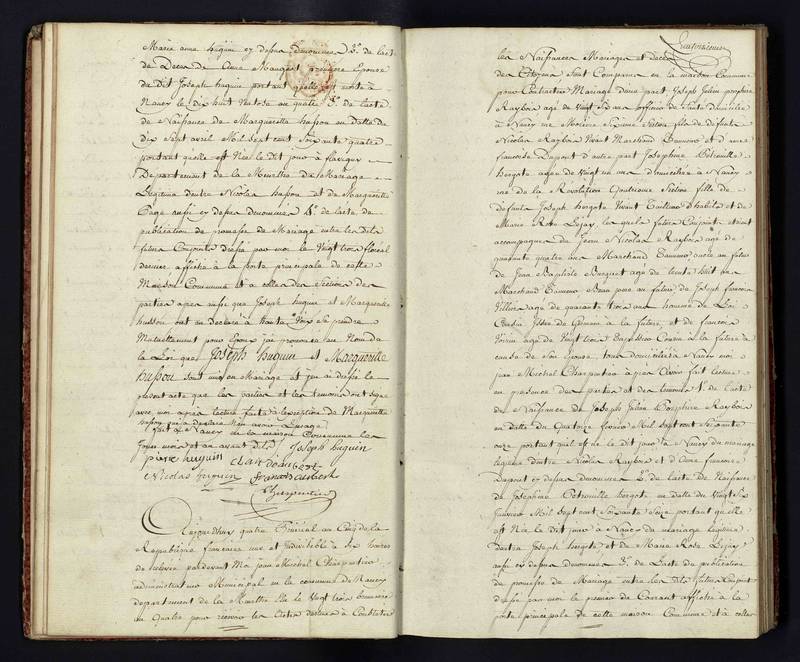 Marie anne huguin cy dessus denommée 2°. de l'acte
de Deces de anne Mangeot premiere Epouse
du dit Joseph huguin portant quelle est morte à
Nancy le dix huit Ventose an quatre 3°. de l'acte
de Naissance de Marguerite husson en datte du
dix sept avril Mil sept cent soixante quatre
portant quelle est Née le dit jour à flavigny
Departement de la Meurthe du Mariage
Legitime dentre Nicolas husson et de Marguerite
Page aussi cy dessus denommée 4°. de l'acte de
publication de promesse de Mariage entre les dits
futurs Conjoints dressé par moi le Vingt trois floreal
dernier affiché à la porte principale de cette
Maison Commune et à celles des sections des
parties apres aussi que Joseph huguin et Marguerite
husson ont eu declaré à haute Voix se prendre
Mutuellement pour Epoux j'ai prononcé au Nom de
la Loi que Joseph huguin et Marguerite
husson sont unis en Mariage et j'ai dressé le
present acte que les parties et les temoins ont signé
avec moi apres lecture faite à l'exception de Marguerite
husson qui a declaré n'en avoir l'usage
fait à Nancy en la maison Commune les
jour mois et an avant dits Joseph huguin
pierre huguin
Nicolas huguin francois aubert
Charpentier
Aujourdhuy quatre Prairial an Cinq de la
Republique francaise une et indivisible à six heures
de relevée pardevant Moi jean Michel Charpentier
administrateur Municipal en la commune de Nancy
departement de la Meurthe Elu le Vingt trois brumaire
an Quatre pour recevoir les Actes destinés à Constater
les Naissances Mariages et Deces
des Citoyens Sont Comparus en la maison Commune
pour Contracter Mariage d'une part Joseph Julien
Raybois agé de Vingt Six ans
à Nancy rue Moliere Sixieme Section fils de defunts
Nicolas Raybois Vivant Marchand Tanneur et d'anne
francoise Dupont d'autre part Josephine Petronille
hergote agée de Vingt un ans domiciliée à Nancy
rue de la Révolution Quatrieme Section fille de
defunts Joseph hergote Vivant Tailleur d'habits et de
Marie Rose Lejay, les quels futurs Conjoints etoient
accompagnés de Jean Nicolas Raybois agé de
quarante quatre ans Marchand Tanneur oncle au futur
de Jean Baptiste agé de trente huit ans
Marchand Tanneur Beau pere au futur de Joseph francois
Villers agé de quarante trois ans homme de Loi
Cousin Issu de Germain à la future et de francois
Voirin agé de Vingt trois Cousin à la future à
cause de son epouse, tous domiciliés à Nancy moi
jean Michel Charpentier après avoir fait lecture
en presence des parties et des temoins 1°. de l'acte
de Naissance de Joseph Julien Raybois
en datte du Quatorze fevrier Mil sept cent soixante
onze portant qu'il est né le dit jour à Nancy du mariage
legitime d'entre Nicolas Raybois et d'Anne francoise
Dupont cy dessus denommés 2°. de l'acte de Naissance
de Josephine Petronille hergote en datte du Vingt Six
Janvier Mil sept cent soixante Seize portant qu'elle
est Née le dit jour à Nancy du mariage legitime
d'entre Joseph hergote et de Marie Rose Lejay
aussi cy dessus denommés 3°. de l'acte de publication
de promesse de Mariage entre les dits futurs Conjoints
dressé par moi le premier du Courant affiché à la
porte principale de cette maison Commune et à celles